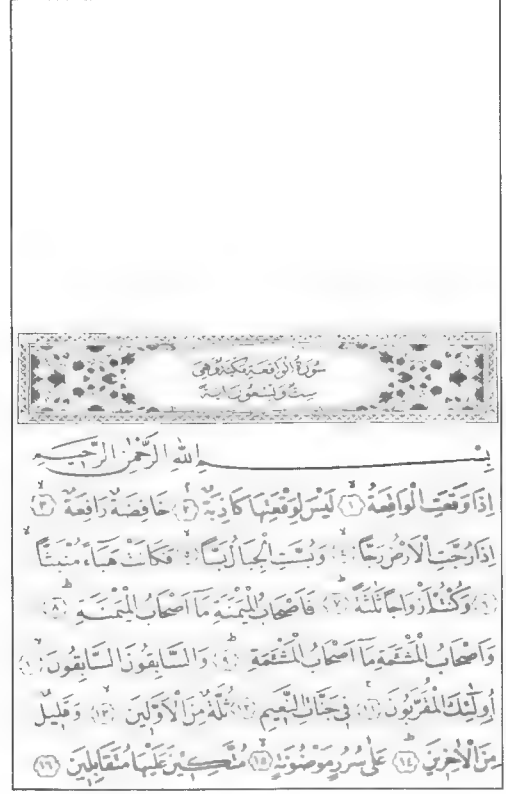 سُورَةُ الْوَاقِعَةِ مَكِّيَّةٌ وَهِيَ
سِتٌّ وَتِسْعُونَ اٰيَةً
بِسْمِ اللّٰهِ الرَّحْمٰنِ الرَّحِيمِ
اِذَا وَقَعَتِ الْوَاقِعَةُ ﴿١﴾ لَيْسَ لِوَقْعَتِهَا كَاذِبَةٌ ﴿٢﴾ خَافِضَةٌ رَافِعَةٌ ﴿٣﴾
اِذَا رُجَّتِ الْاَرْضُ رَجًّا ﴿٤﴾ وَبُسَّتِ الْجِبَالُ بَسًّا ﴿٥﴾ فَكَانَتْ هَبَٓاءً مُنْبَثًّا
﴿٦﴾ وَكُنْتُمْ اَزْوَاجًا ثَلٰثَةً ﴿٧﴾ فَاَصْحَابُ الْمَيْمَنَةِ مَٓا اَصْحَابُ الْمَيْمَنَةِ ﴿٨﴾
وَاَصْحَابُ الْمَشْـَٔمَةِ مَٓا اَصْحَابُ الْمَشْـَٔمَةِ ﴿٩﴾ وَالسَّابِقُونَ السَّابِقُونَ ﴿١٠﴾
اُولٰٓئِكَ الْمُقَرَّبُونَ ﴿١١﴾ فِي جَنَّاتِ النَّعِيمِ ﴿١٢﴾ ثُلَّةٌ مِنَ الْاَوَّلِينَ ﴿١٣﴾ وَقَلِيلٌ
مِنَ الْاٰخِرِينَ ﴿١٤﴾ عَلٰى سُرُرٍ مَوْضُونَةٍ ﴿١٥﴾ مُتَّكِـِٔينَ عَلَيْهَا مُتَقَابِلِينَ ﴿١٦﴾